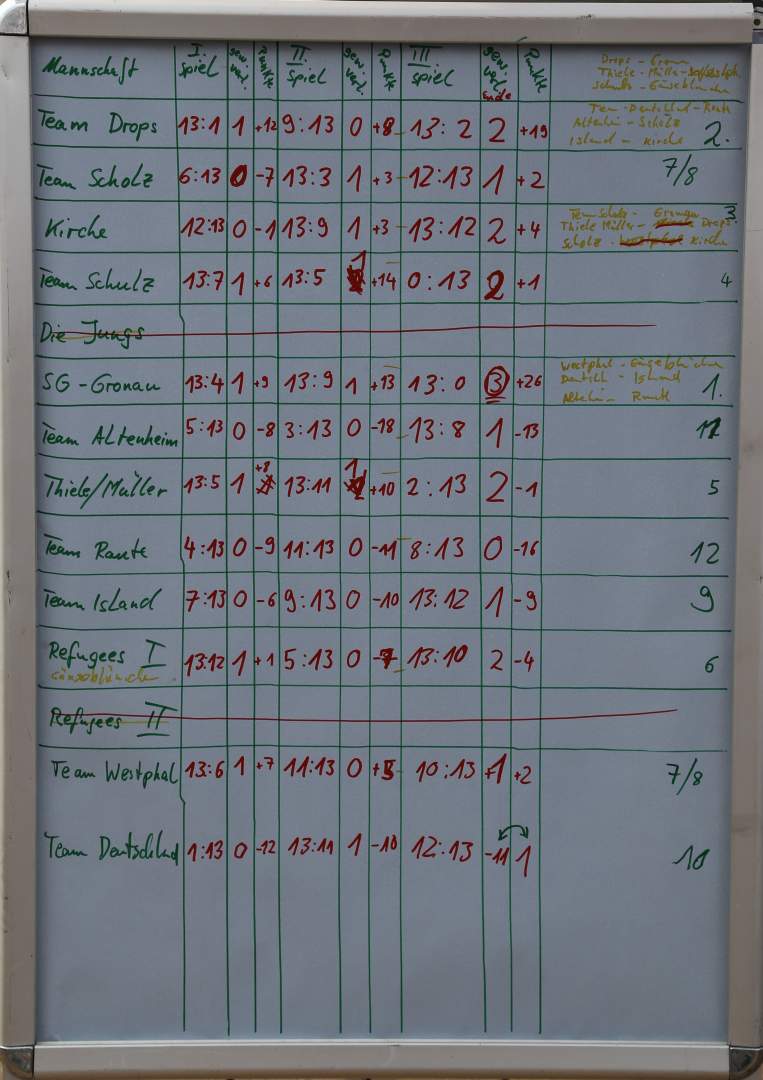 Mannschaft I. Spiel gew. verl. Punkte II. Spiel gew. verl. Punkte III Spiel gew. verl. Ende Punkte
Drops - Gronau
Thiele-Müller -
Schulz -
Team Drops 13:1 1 +12 9:13 0 +8 13:2 2 +19 2.
Team - Deutschland - Raute
Altenheim - Scholz
Island - Kirche
Team Scholz 6:13 0 -7 13:3 1 +3 12:13 1 +2 7/8
Kirche 12:13 0 -1 13:9 1 +3 13:12 2 +4 3.
Team Schulz - Gronau
Thiele Müller - Drops
Scholz - Westphal Kirche
Team Schulz 13:7 1 +6 13:5 1 +14 0:13 2 +1 4
Die Jungs
SG-Gronau 13:4 1 +9 13:9 1 +13 13:0 3 +26 1.
Westphal -
Deutschl - Island
Altenheim Raute
Team Altenheim 5:13 0 -8 3:13 0 -18 13:8 1 -13 11
Thiele/Müller 13:5 1 +8 13:11 1 +10 2:13 2 -1 5
Team Raute 4:13 0 -9 11:13 0 -11 8:13 0 -16 12
Team Island 7:13 0 -6 9:13 0 -10 13:12 1 -9 9
Refugees I 13:12 1 +1 5:13 0 -7 13:10 2 -4 6
Refugees II
Team Westphal 13:6 1 +7 11:13 0 +5 10:13 +1 +2 7/8
Team Deutschland 1:13 0 -12 13:11 1 -10 12:13 -11 1 10